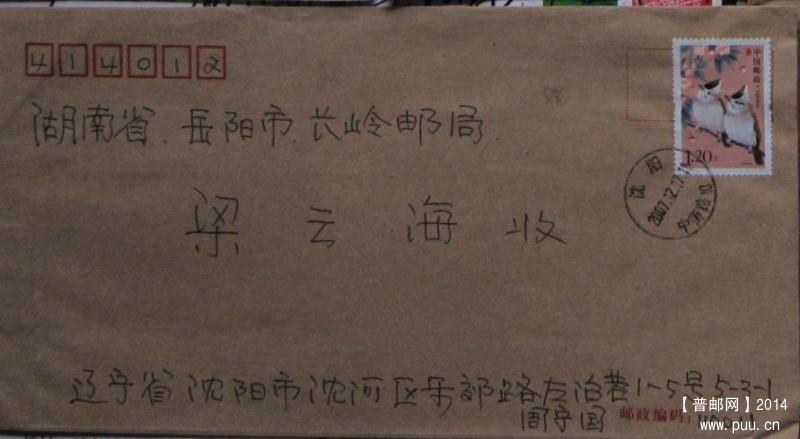 414012
中国邮政
湖南省.岳阳市.长岭邮局
1.20元
沈阳
2007.12.
梁云海收
辽宁省沈阳市沈河区乐郊路左治巷1-5号5-3-1
周守国
邮政编码：
【普邮网】2014
www.puu.cn